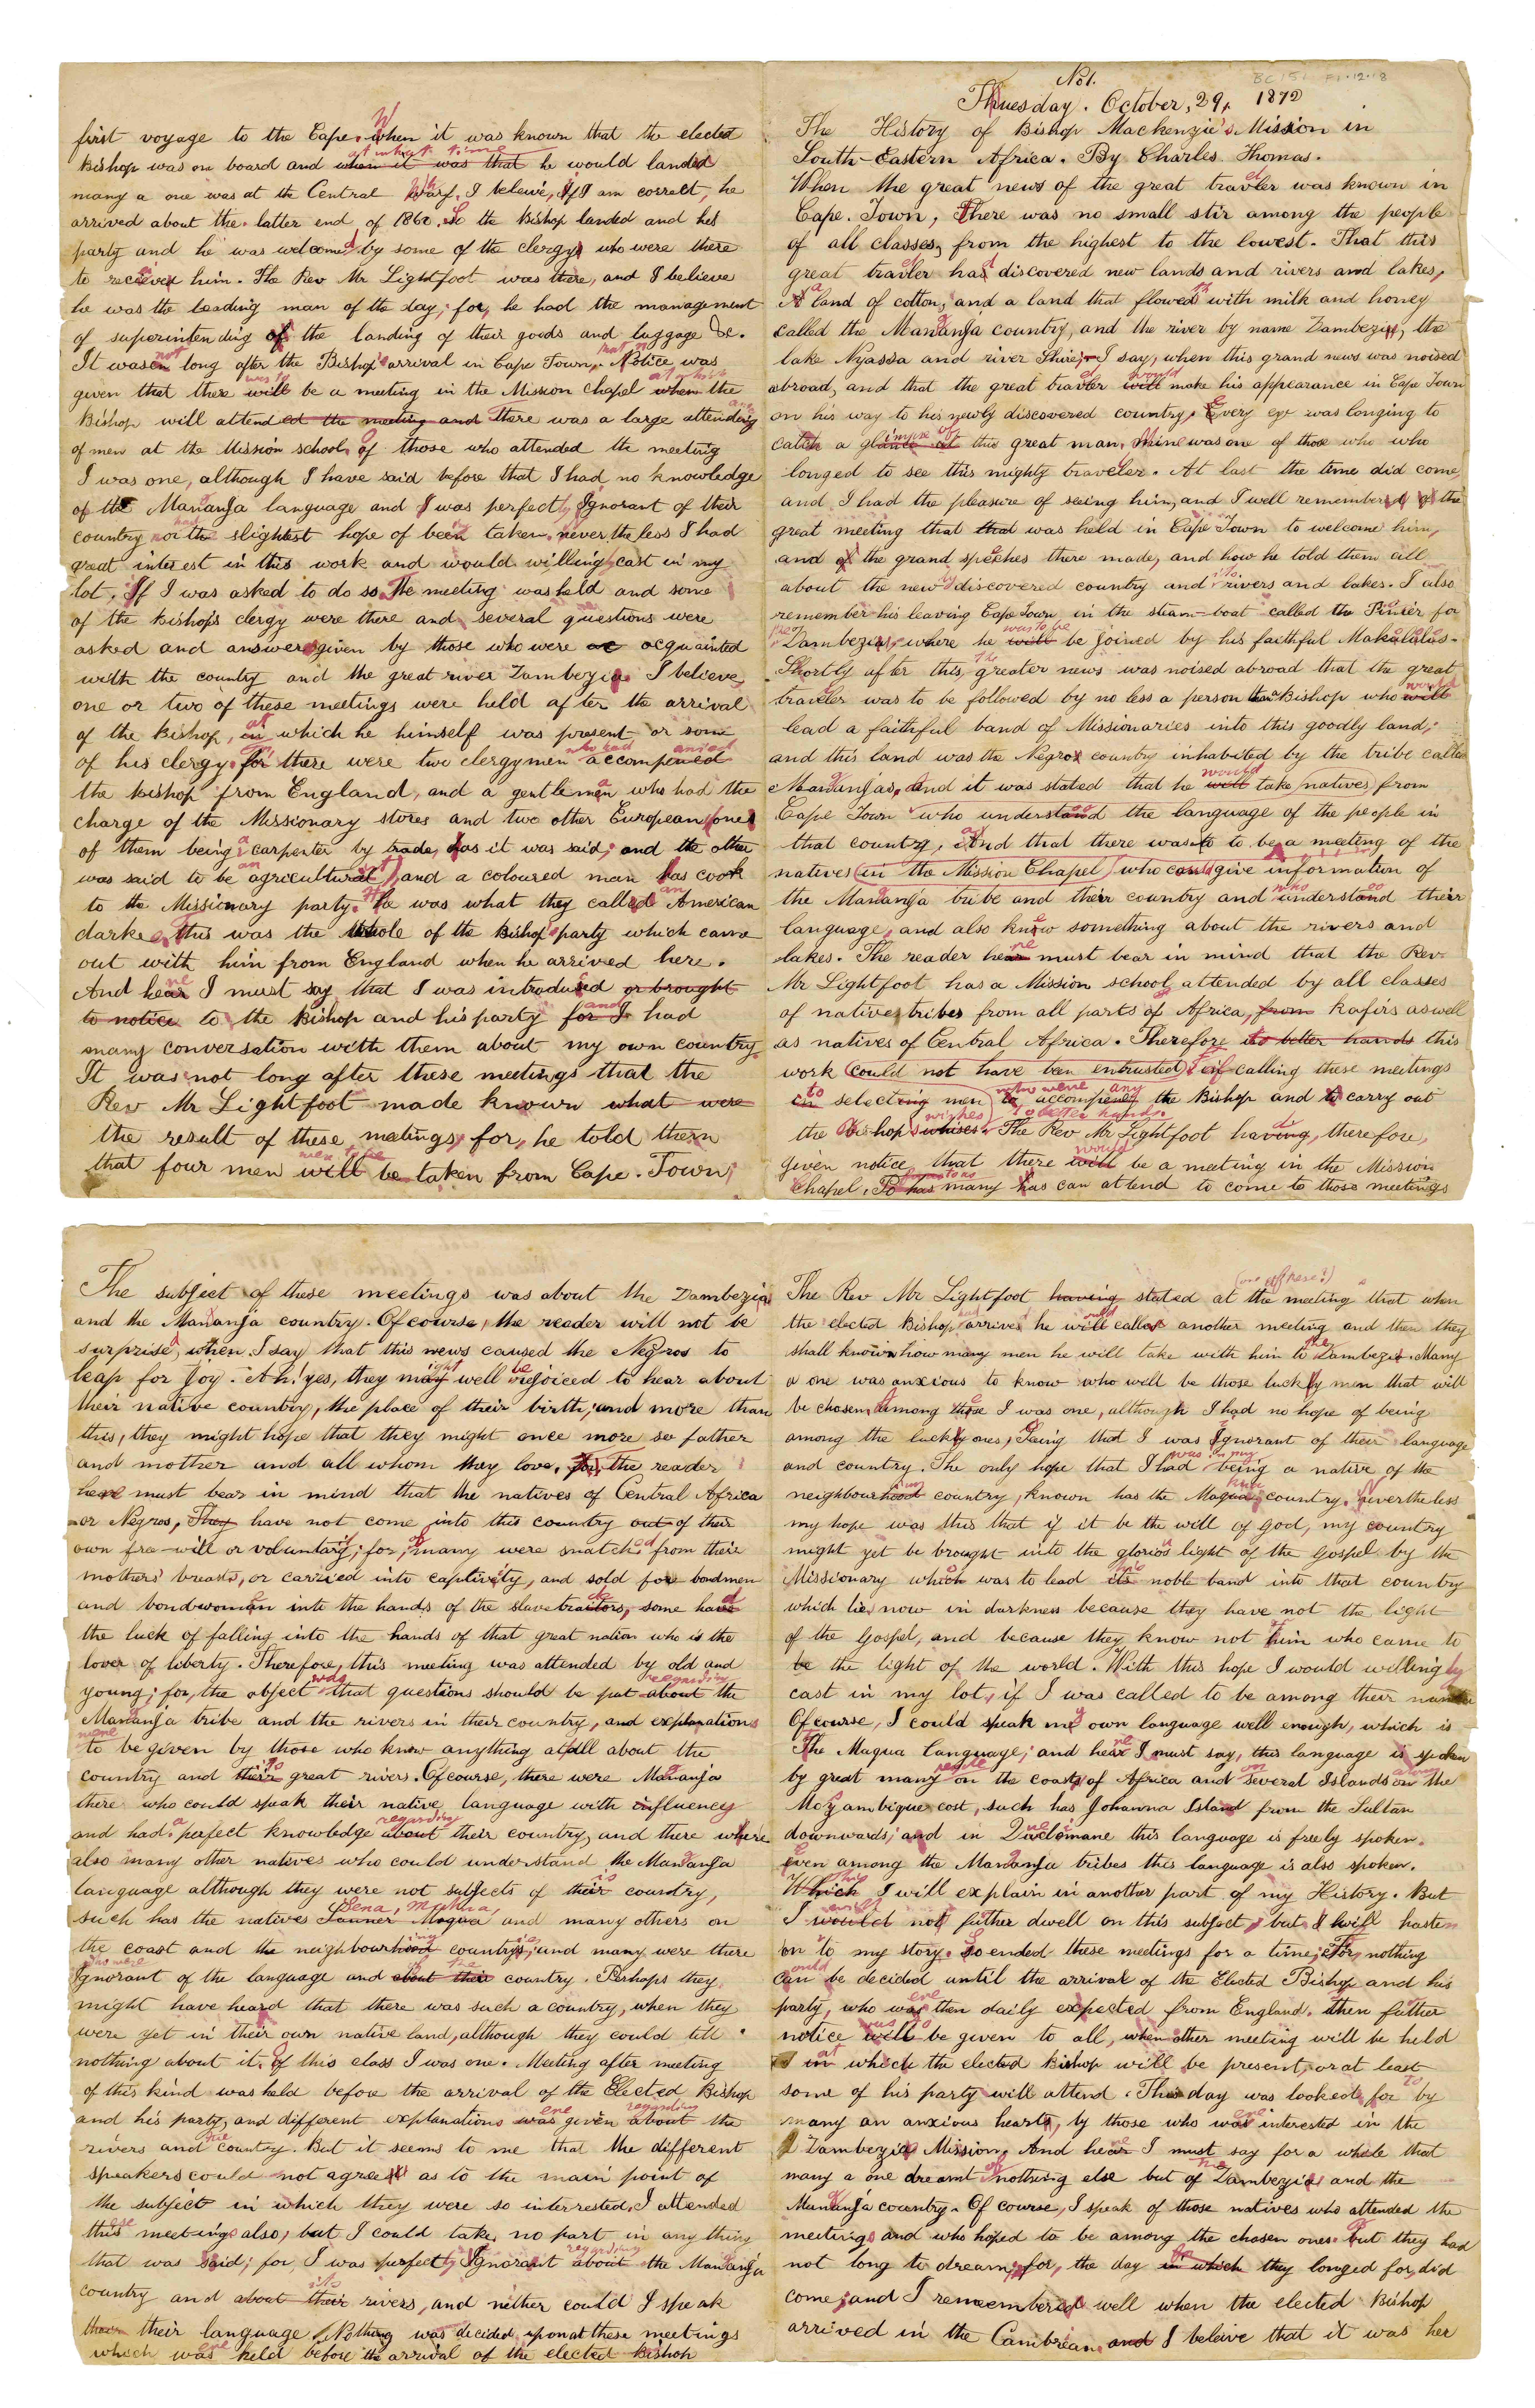 No 1. BC 151 F1.12.18
Thuesday. October, 29, 1872
The History of Bishop Mackenzie's Mission in
South-Eastern Africa. By Charles Thomas.
When the great news of the great traveler was known in
Cape. Town, There was no small stir among the people
of all classes, from the highest to the lowest. That this
great traveler had discovered new lands and rivers and lakes,
a land of cotton, and a land that floweth with milk and honey
called the Mananja country, and the river by name Zambezi, the
lake Nyassa and river Shire; I say, when this grand news was noised
abroad, and that the great traveler will would make his appearance in Cape Town
on his way to his newly discovered country, Every eye was longing to
catch a glance at glimpse of this great man, Mine was one of those who who
longed to see this mighty traveler. At last the time did come,
and I had the pleasure of seeing him, and I well remembered of the
great meeting that that was held in Cape Town to welcome him,
and of the grand speeches there made, and how he told them all
about the new discovered country and its rivers and lakes. I also
remember his leaving Cape Town in the steam-boat called the Pinier for
the Zambezi, where he will was to be be joined by his faithful Makalalas.
Shortly after this, the greater news was noised abroad that the great
traveler was to be followed by no less a person than Bishop who will would
lead a faithful band of Missionaries into this goodly land;
and this land was the Negros country inhabited by the tribe called
Mananjas, And it was stated that he will would take natives from
Cape Town who understand the language of the people in
that country, And that there was to be a meeting of the
natives in the Mission Chapel who could give information of
the Mananja tribe and their country and who understand their
language, and also know something about the rivers and
lakes. The reader hear here must bear in mind that the Rev
Mr Lightfoot has a Mission school attended by all classes
of natives tribes from all parts of Africa, from Kafirs as well
as natives of Central Africa. Therefore its to better hands this
work could not have been intrusted, for calling these meetings
in to selecting men to who were to accompany the Bishop and to carry out
the Bishop's whises wishes. to better hands. The Rev Mr Lightfoot having, therefore,
given notice that there will would be a meeting in the Mission
Chapel, To has many has can attend to come to those meetings
The subject of these meetings was about the Zambezia
and the Mananja country. Of course, the reader will not be
surprised, when I say that this news caused the Negros to
leap for Joy. Ah! yes, they may might well be rejoiced to hear about
their native country, the place of their birth; and more than
this, they might hope that they might once more see father
and mother and all whom they love, for the reader
here must bear in mind that the natives of Central Africa
or Negros, They have not come into this country out of their
own free-will or voluntary; for, of many were snatched from their
mothers' breasts, or carried into captivity, and sold for bondmen
and bondwomen into the hands of the slave traitors, some have had
the luck of falling into the hands of that great nation who is the
lover of liberty. Therefore, this meeting was attended by old and
young; for, the object was that questions should be put about regarding the
Mananja tribe and the rivers in their country, and explanations
were to be given by those who know anything at all about the
country and their its great rivers. Of course, there were Mananja
there who could speak their native language with influency
and had a perfect knowledge about regarding their country, and there where
also many other natives who could understand the Mananja
language although they were not subjects of their its country,
such has the natives Sena, Makua, Sanner Maqua and many others on
the coast and the neighbourhood ing countries, and many were there
who were Ignorant of the language and about their of the country. Perhaps they
might have heard that there was such a country, when they
were yet in their own native land, although they could tell
nothing about it. Of this class I was one. Meeting after meeting
of this kind was held before the arrival of the Elected Bishop
and his party, and different explanations was were given about regarding the
rivers and the country. But it seems to me that the different
speakers could not agree as to the main point of
the subject in which they were so interested. I attended
these meetings also, but I could take no part in any thing
that was said; for I was perfectly Ignorant about regarding the Mananja
country and about their its rivers, and neither could I speak
their language. Nothing was decided upon at these meetings
which was were held before the arrival of the elected Bishop
The Rev Mr Lightfoot having stated at the (one of these?) meeting that when
the elected Bishop arrives he will would call another meeting and then they
shall know how many men he will take with him to the Zambezi. Many
a one was anxious to know who will be those lucky men that will
be chosen, Among these I was one, although I had no hope of being
among the lucky ones, Seing that I was Ignorant of their language
and country. The only hope that I had was in my being a native of the
neighbourhood ing country, known has the Maqua country. Nevertheless
my hope was this that if it be the will of God, my country
might yet be brought into the glorious light of the Gospel by the
Missionary which was to lead its his noble band into that country
which lies now in darkness because they have not the light
of the Gospel, and because they know not him who came to
be the light of the world. With this hope I would willingly
cast in my lot, if I was called to be among their number
Of course, I could speak my own language well enough, which is
The Maqua Language; and hear here I must say, this language is spoken
by great many people on the coasts of Africa and on several Islands on along the
Mozambique cost, such has Johanna Island from the Sultan
downwards; and in Quelimane this language is freely spoken.
Even among the Mananja tribes this language is also spoken.
Which This I will explain in another part of my History. But
I would will not futher dwell on this subject, but I will hasten
on to my story. So ended these meetings for a time; For, nothing
can could be decided until the arrival of the Elected Bishop and his
party, who was were then daily expected from England. then futher
notice will was to be given to all, when other meeting will be held
in at which the elected Bishop will be present, or at least
some of his party will attend. This day was looked for to by
many an anxious heart, by those who was were interested in the
Zambezia Mission. And hear here I must say for a whole that
many a one dreamt of nothing else but of the Zambezia and the
Mananja country. Of course, I speak of those natives who attended the
meetings and who hoped to be among the chosen ones. But they had
not long to dream; for, the day in which they longed for, did
come; and I remembered well when the elected Bishop
arrived in the Cambrian and I beleive that it was her
first voyage to the Cape. When it was known that the elected
Bishop was on board and when it was that at what time he would landed
many a one was at the Central Warf. I beleive, If I am correct, he
arrived about the latter end of 1860. So the Bishop landed and his
party and he was welcomed by some of the clergy who were there
to recieve him. The Rev Mr Lightfoot was there, and I believe
he was the leading man of the day; for, he had the management
of superintending of the landing of their goods and luggage &c.
It was not long after the Bishop's arrival in Cape Town, that Notice was
given that there will was to be a meeting in the Mission Chapel when at which the
Bishop will attended the meeting and there was a large attendance
of men at the Mission school, Of those who attended the meeting
I was one, although I have said before that I had no knowledge
of the Mananja language and I was perfectly Ignorant of their
country nor had the slightest hope of been taken, nevertheless I had
great interest in this work and would willingly cast in my
lot, If I was asked to do so. The meeting was held and some
of the Bishop's clergy were there and several questions were
asked and answers given by those who were ac acquainted
with the country and the great river Zambezia. I believe
one or two of these meetings were held after the arrival
of the Bishop, in at which he himself was present or some
of his clergy. for there were two clergymen who had accompanied
the Bishop from England, and a gentleman who had the
charge of the Missionary stores and two other Europeans, one
of them being a carpenter by trade, has it was said; and the other
was said to be an agricultural ist, and a coloured man has cook
to the Missionary party. He was what they called an American
darke, this was the whole of the Bishop's party which came
out with him from England when he arrived here.
And hear here I must say, that I was introduced or brought
to notice to the Bishop and his party for I and had
many conversation with them about my own country.
It was not long after these meetings that the
Rev Mr Lightfoot made known what were
the result of these meetings, for, he told them
that four men will were to be be taken from Cape. Town